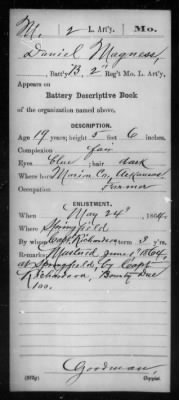 M. 2 L. Art'y. Mo.
Daniel Magness,
, Batt'y B, 2" Reg't Mo. L. Art'y,
Appears on
Battery Descriptive Book
of the organization named above.
DESCRIPTION.
Age 19 years; height 5 feet 6 inches.
Complexion fair
Eyes blue, hair dark
Where born Marion Co., Arkansas
Occupation Farmer
ENLISTMENT.
When May 24", 1864.
Where Springfield
By whom Capt. Richardson term 3 y'rs.
Remarks Mustered June 1, 1864,
at Springfield, by Capt
Richardson, Bounty Due
100.
Goodman,
Copyist.